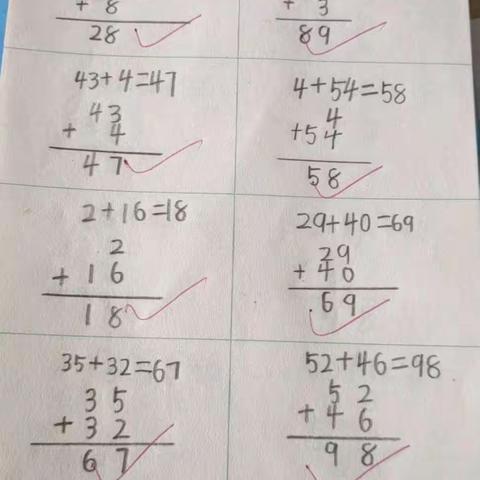 + 8
28
+ 3
89
43+4=47
43
+ 4
47
4+54=58
4
+54
58
2+16=18
2
+ 16
18
29+40=69
29
+ 40
69
35+32=67
35
+ 32
67
52+46=98
52
+ 46
98